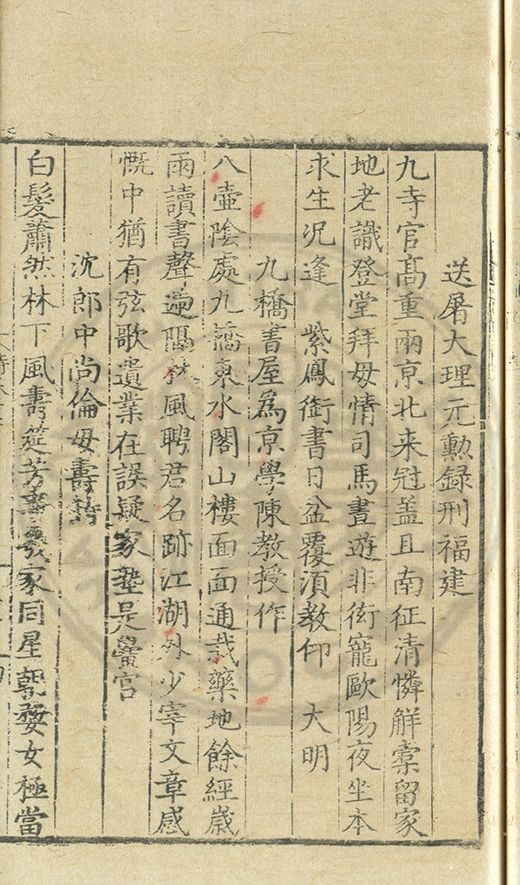 送屠大理元勳録刑福建
九寺官高重兩京北来冠盖且南征清憐觧橐留家
地老識登堂拜母情司馬晝遊非衒寵歐陽夜坐本
求生况逢 紫鳳銜書日盆覆湏教仰 大明
九橋書屋爲京學陳教授作
八壷陰處九橋東水閣山樓面面通栽藥地餘經歳
雨讀書聲遞隔 風聘君名跡江湖外少宰文章感
慨中猶有弦歌遺業在誤疑家塾是黌宫
沈郎中尚倫母壽詩
白髮蕭然林下風壽筵芳 家同星 婺女極當